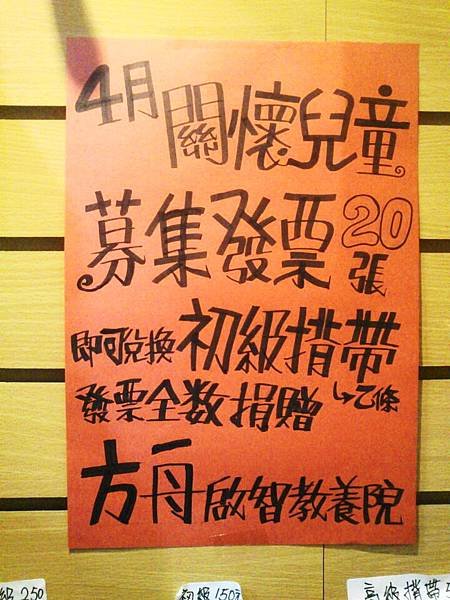 4月
關懷兒童
募集發票20張
即可兌換初級揹帶
↳乙條
發票全数捐贈
方舟啟智教養院
級250
初級150
高級揹帶